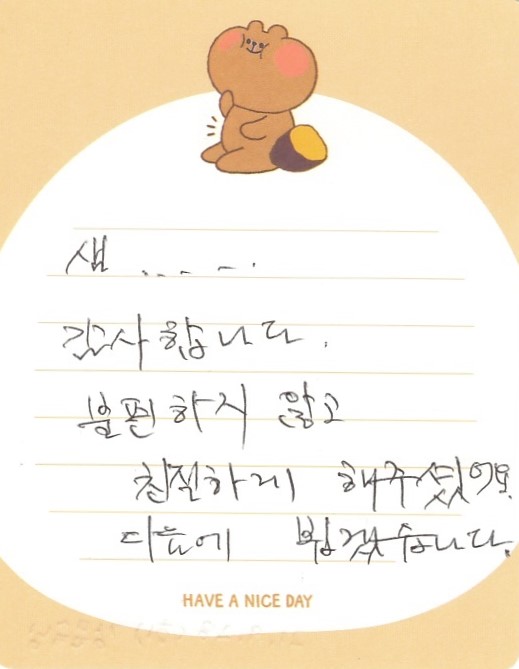 샘 ......
감사합니다.
불편하지 않고
친절하게 해주셨어요.
다음에 뵙겠습니다.
HAVE A NICE DAY